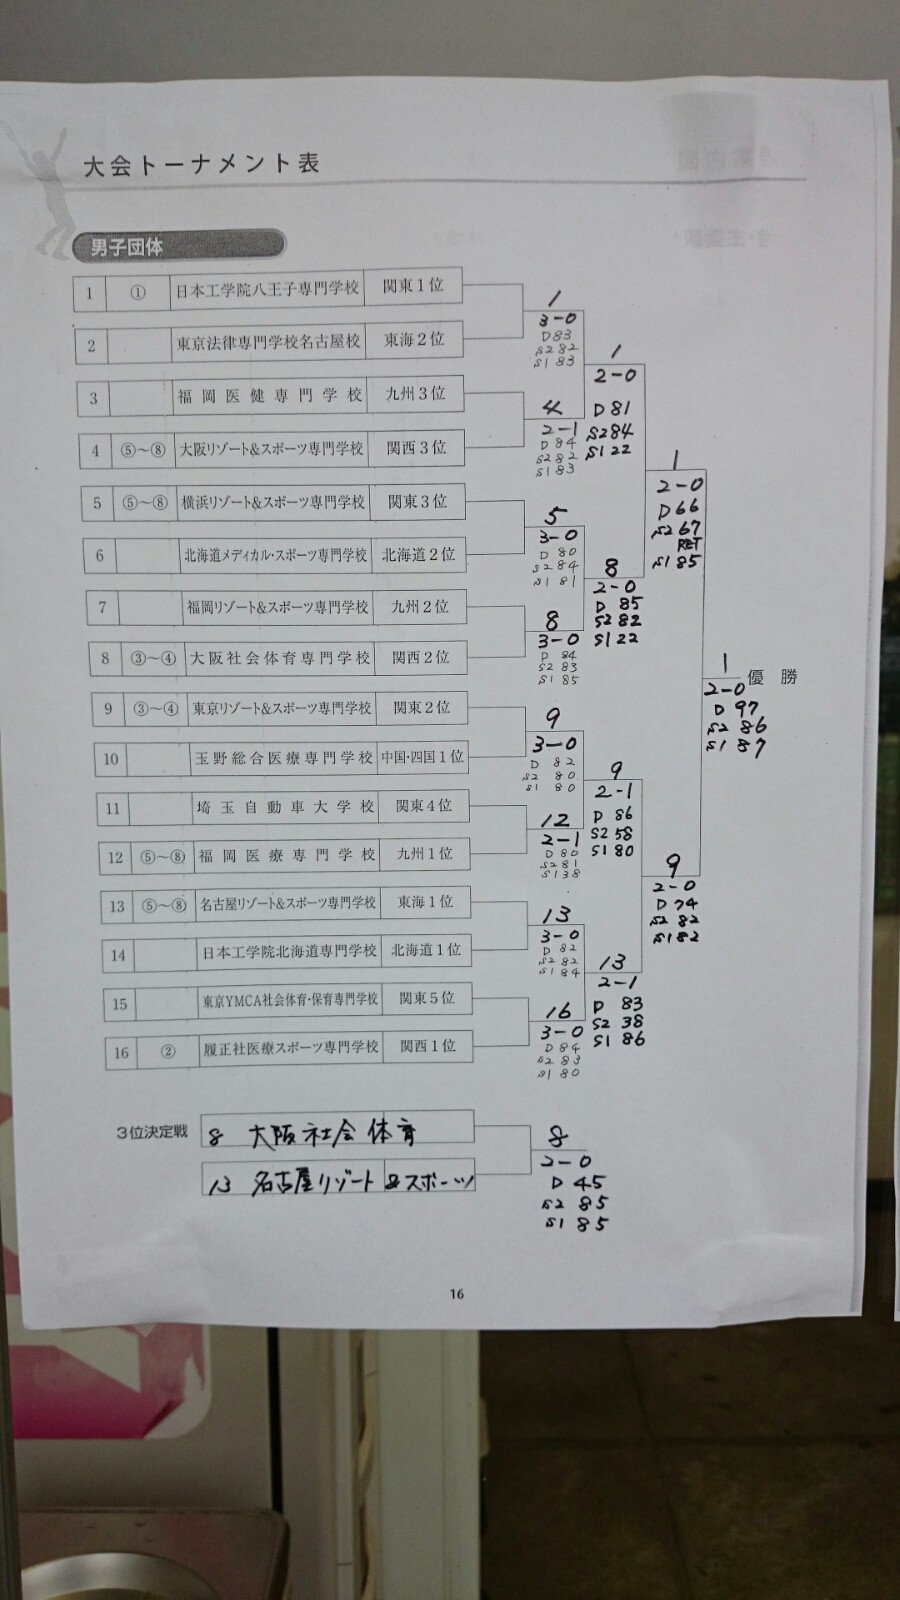 大会トーナメント表
男子団体
1 ① 日本工学院八王子専門学校 関東1位
2 東京法律専門学校名古屋校 東海2位
3 福岡医健専門学校 九州3位
4 ⑤～⑧ 大阪リゾート&スポーツ専門学校 関西3位
5 ⑤～⑧ 横浜リゾート&スポーツ専門学校 関東3位
6 北海道メディカル・スポーツ専門学校 北海道2位
7 福岡リゾート&スポーツ専門学校 九州2位
8 ③～④ 大阪社会体育専門学校 関西2位
9 ③～④ 東京リゾート&スポーツ専門学校 関東2位
10 玉野総合医療専門学校 中国・四国1位
11 埼玉自動車大学校 関東4位
12 ⑤～⑧ 福岡医療専門学校 九州1位
13 ⑤～⑧ 名古屋リゾート&スポーツ専門学校 東海1位
14 日本工学院北海道専門学校 北海道1位
15 東京YMCA社会体育・保育専門学校 関東5位
16 ② 履正社医療スポーツ専門学校 関西1位
1
3-0
D 83
S2 82
S1 83
4
2-1
D 84
S2 82
S1 83
5
3-0
D 80
S2 84
S1 81
8
3-0
D 84
S2 83
S1 85
9
3-0
D 82
S2 80
S1 80
12
2-1
D 80
S2 81
S1 38
13
3-0
D 82
S2 82
S1 84
16
3-0
D 84
S2 83
S1 80
1
2-0
D 81
S2 84
S1 22
8
2-0
D 85
S2 82
S1 22
9
2-1
D 86
S2 58
S1 80
13
2-1
D 83
S2 38
S1 86
1
2-0
D 66
S2 67
RET
S1 85
9
2-0
D 74
S2 82
S1 82
1
優勝
2-0
D 97
S2 86
S1 87
3位決定戦
8 大阪社会体育
13 名古屋リゾート&スポーツ
8
2-0
D 45
S2 85
S1 85
16